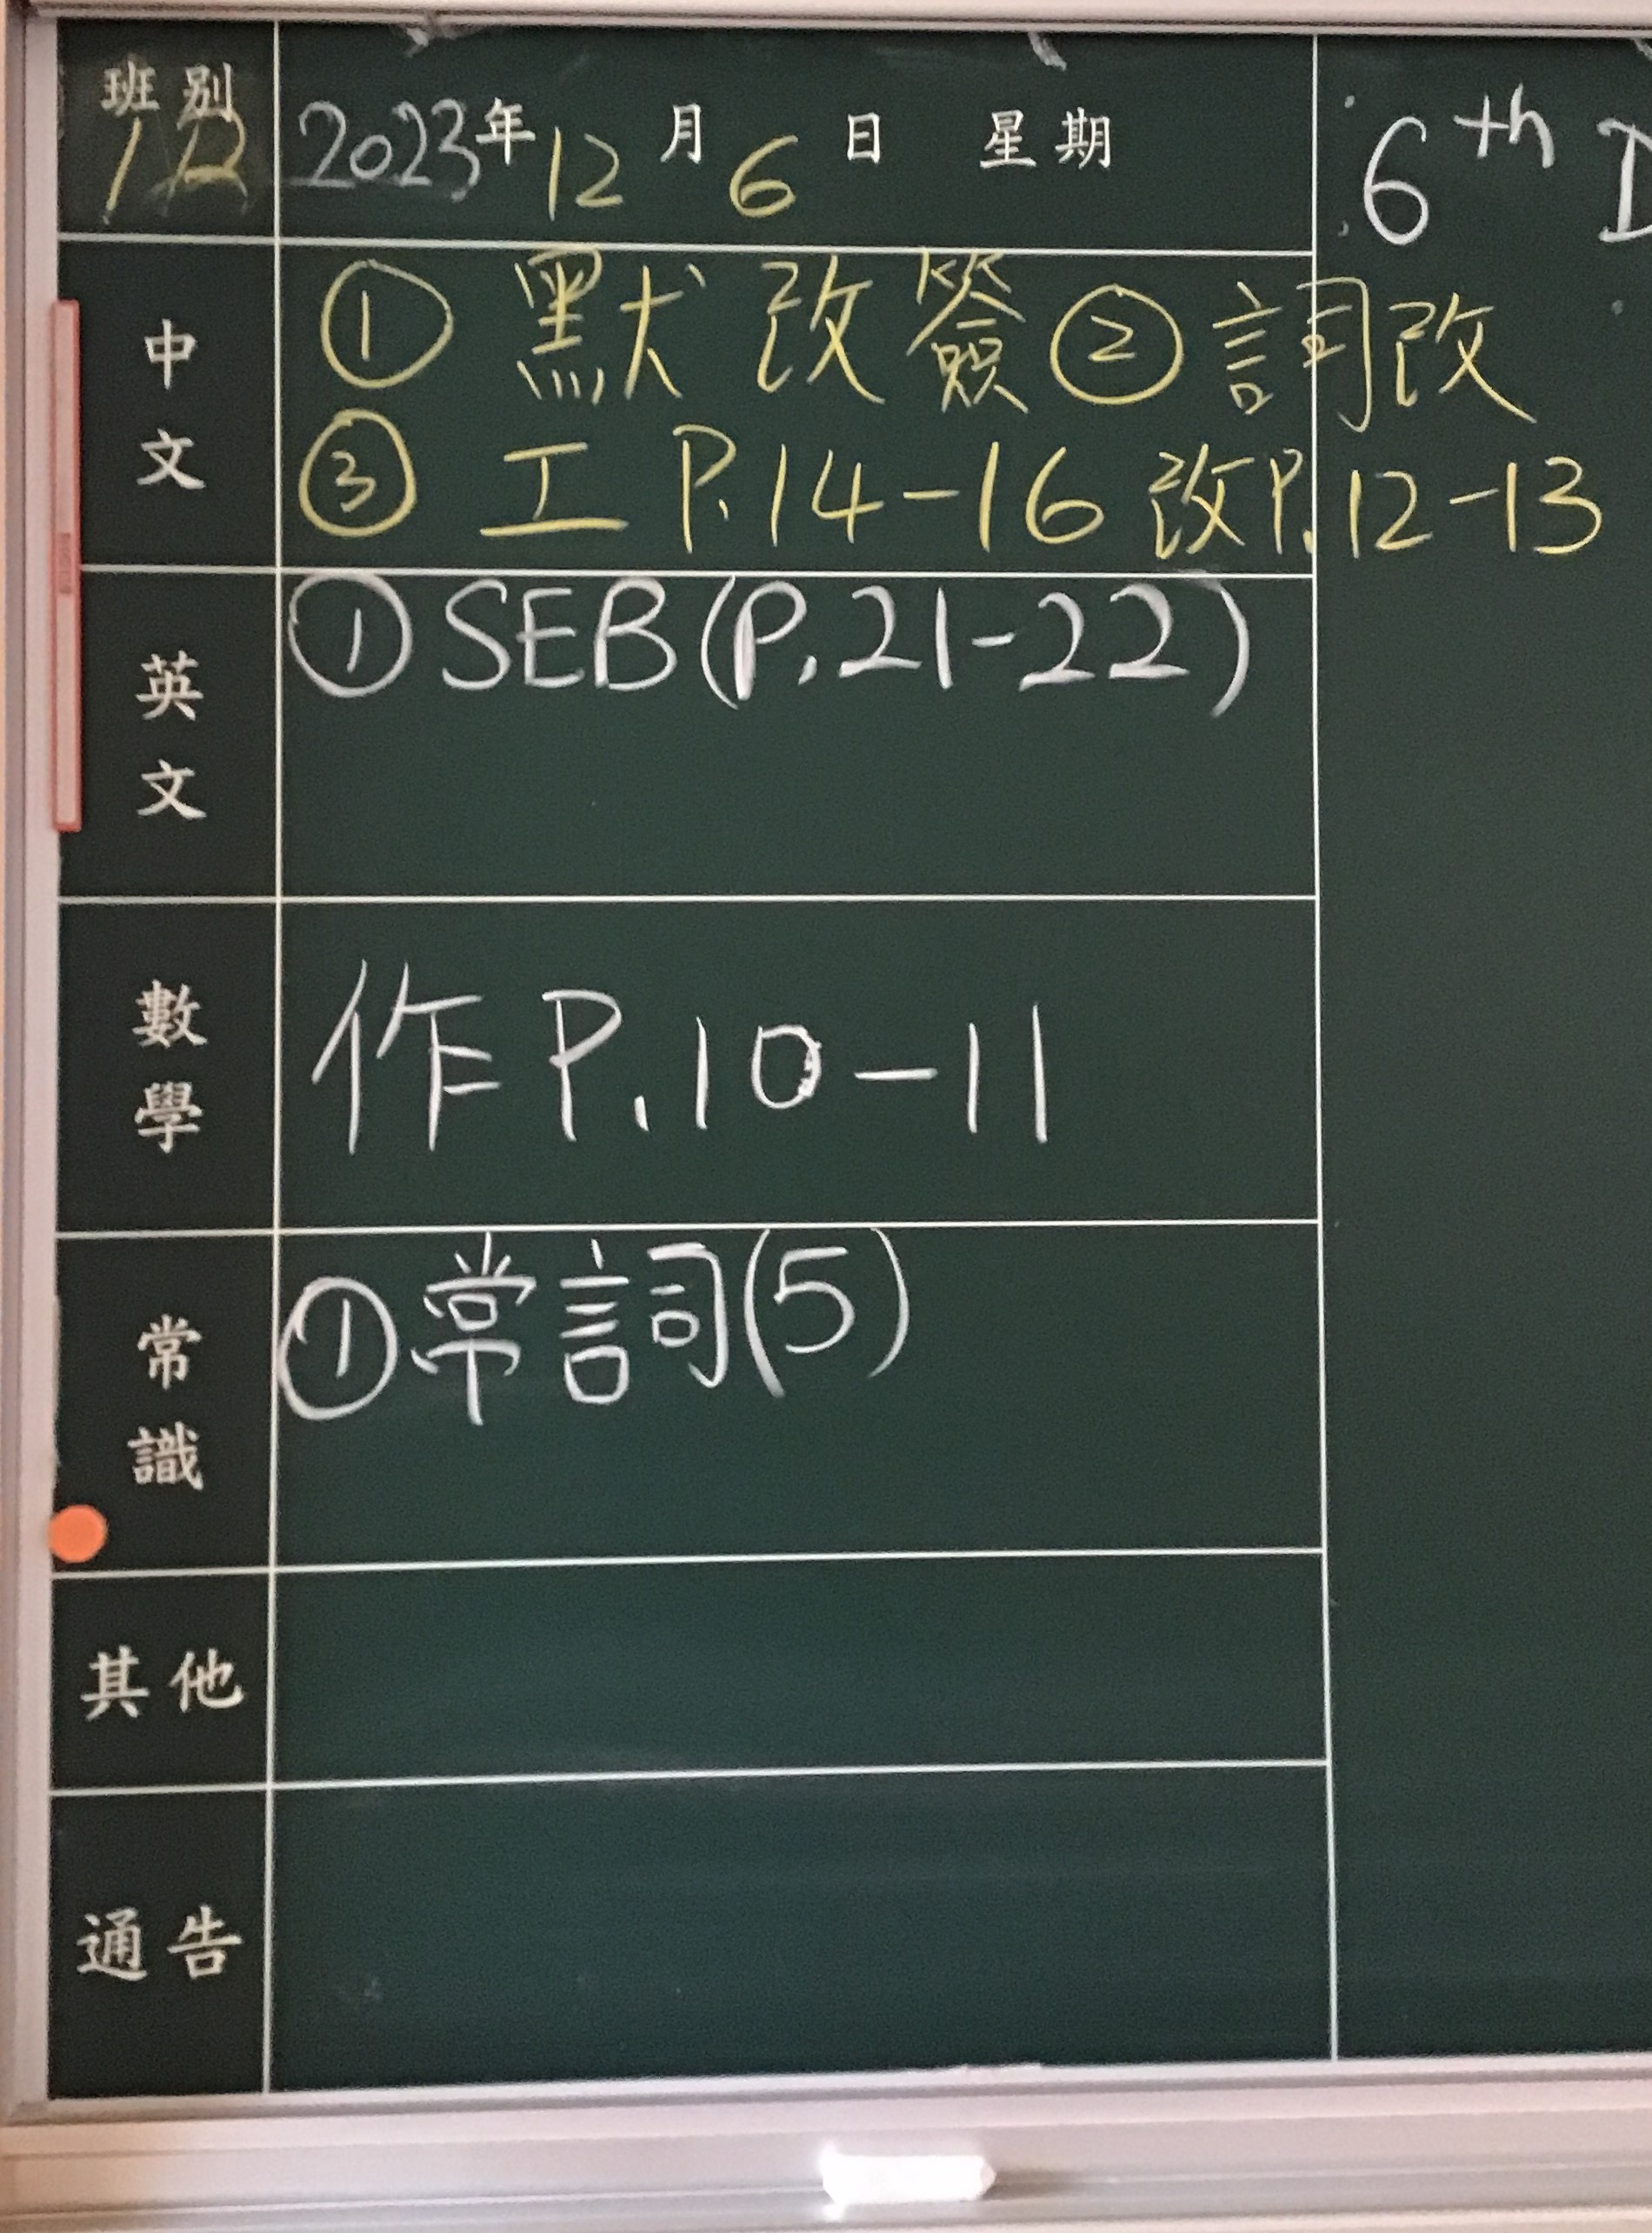 班別
2023年12月6日 星期
6th D
中文
① 默改簽 ② 詞改
③ 工 P.14-16 改P.12-13
英文
① SEB (P.21-22)
數學
作 P.10-11
常識
① 常詞(5)
其他
通告